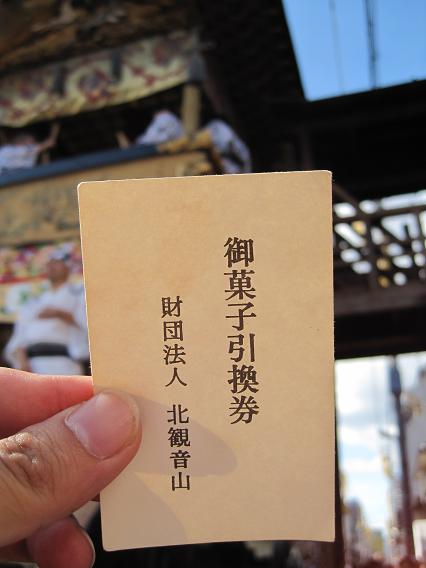 御菓子引換券
財団法人 北観音山